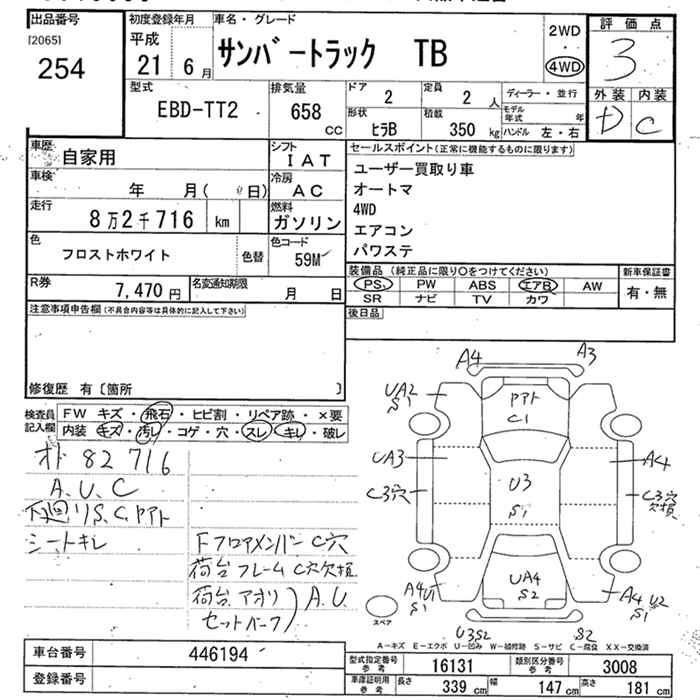 出品番号
[2065]
254
初度登録年月
平成
21 6月
車名・グレード
サンバートラック TB
2WD
・
4WD
評価点
3
外装 内装
D C
型式
EBD-TT2
排気量
658
CC
ドア
2
定員
2 人
形状
ヒラB
積載
350 kg
ディーラー・並行
モデル年式 年
ハンドル 左・右
車歴
自家用
シフト
IAT
車検
年 月( 日)
冷房
AC
走行
8万2千716 km
燃料
ガソリン
色
フロストホワイト
色替
色コード
59M
R券
7,470円
名変通知期限
月 日
セールスポイント(正常に機能するものに限ります)
ユーザー買取り車
オートマ
4WD
エアコン
パワステ
装備品 (純正品に限り○をつけてください)
PS PW ABS エアB AW
SR ナビ TV カワ
新車保証書
有・無
後日品
注意事項申告欄(不具合内容等は具体的に記入して下さい)
修復歴 有〔箇所 〕
検査員記入欄
FW キズ・飛石・ヒビ割・リペア跡・×要
内装 キズ・汚レ・コゲ・穴・スレ・キレ・破レ
オド 82716
A.U.C
下廻リS.C.Pアト
シートキレ
Fフロアメンバー C穴
荷台フレーム C穴欠損
荷台アオリ
セットバーク
A.U.
A4 A3
UA2
S1
Pアト
C1
UA3
A4
C3穴
U3
S1
C3穴
欠損
A4U1
S1
UA4
S2
A4 U2
S1
スペア
U3S2
S2
A-キズ E-エクボ U-凹み W-補修跡 S-サビ C-腐食 XX-交換済
車台番号
446194
登録番号
型式指定番号
参考
16131
類別区分番号
参考
3008
車庫証明用
参考
長さ 339 cm
幅 147 cm
高さ 181 cm